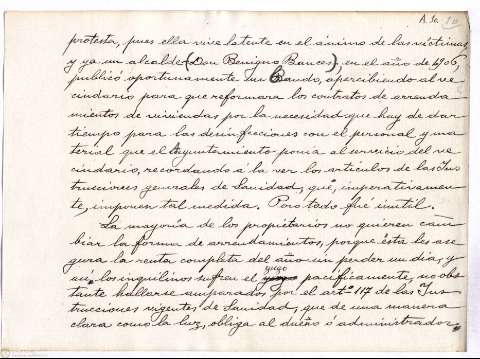 A. Sc. 10
protesta, pues ella vive latente en el ánimo de las víctimas
y ya un alcalde (Don Benigno Bances), en el año de 1906,
publicó oportunamente un Bando, apercibiendo al ve
cindario para que reformara los contratos de arrenda
mientos de viviendas por la necesidad que hay de dar
tiempo para las desinfecciones con el personal y ma
terial que el Ayuntamiento ponía al servicio del ve
cindario, recordando á la vez los artículos de las Ins
trucciones generales de Sanidad, que, imperativamen-
te, imponen tal medida. Pero todo fué inútil.
La mayoría de los propietarios no quieren cam
biar la forma de arrendamientos, porque ésta les ase
gura la renta completa del año sin perder un día, y
así, los inquilinos sufren el yugo pacíficamente, no obs
tante hallarse amparados por el artº 117 de las Ins
trucciones vigentes de Sanidad, que de una manera
clara como la luz, obliga al dueño ó administrador